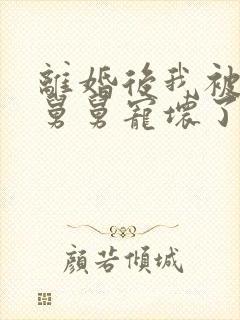 離婚後我被
舅舅寵壞了
顏若傾城